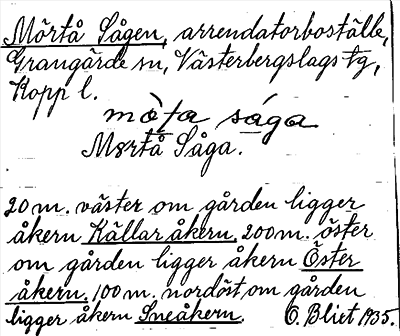 Mörtå Sågen, arrendatorboställe,
Grangärde sn, Västerbergslags tg,
Kopp l.
mò̀ta såga
Mörtå Såga.
20 m. väster om gården ligger
åkern Källar åkern. 200 m. öster
om gården ligger åkern Öster
åkern. 100 m. nordöst om gården
ligger åkern Sneåkern. C. Bliet 1935.